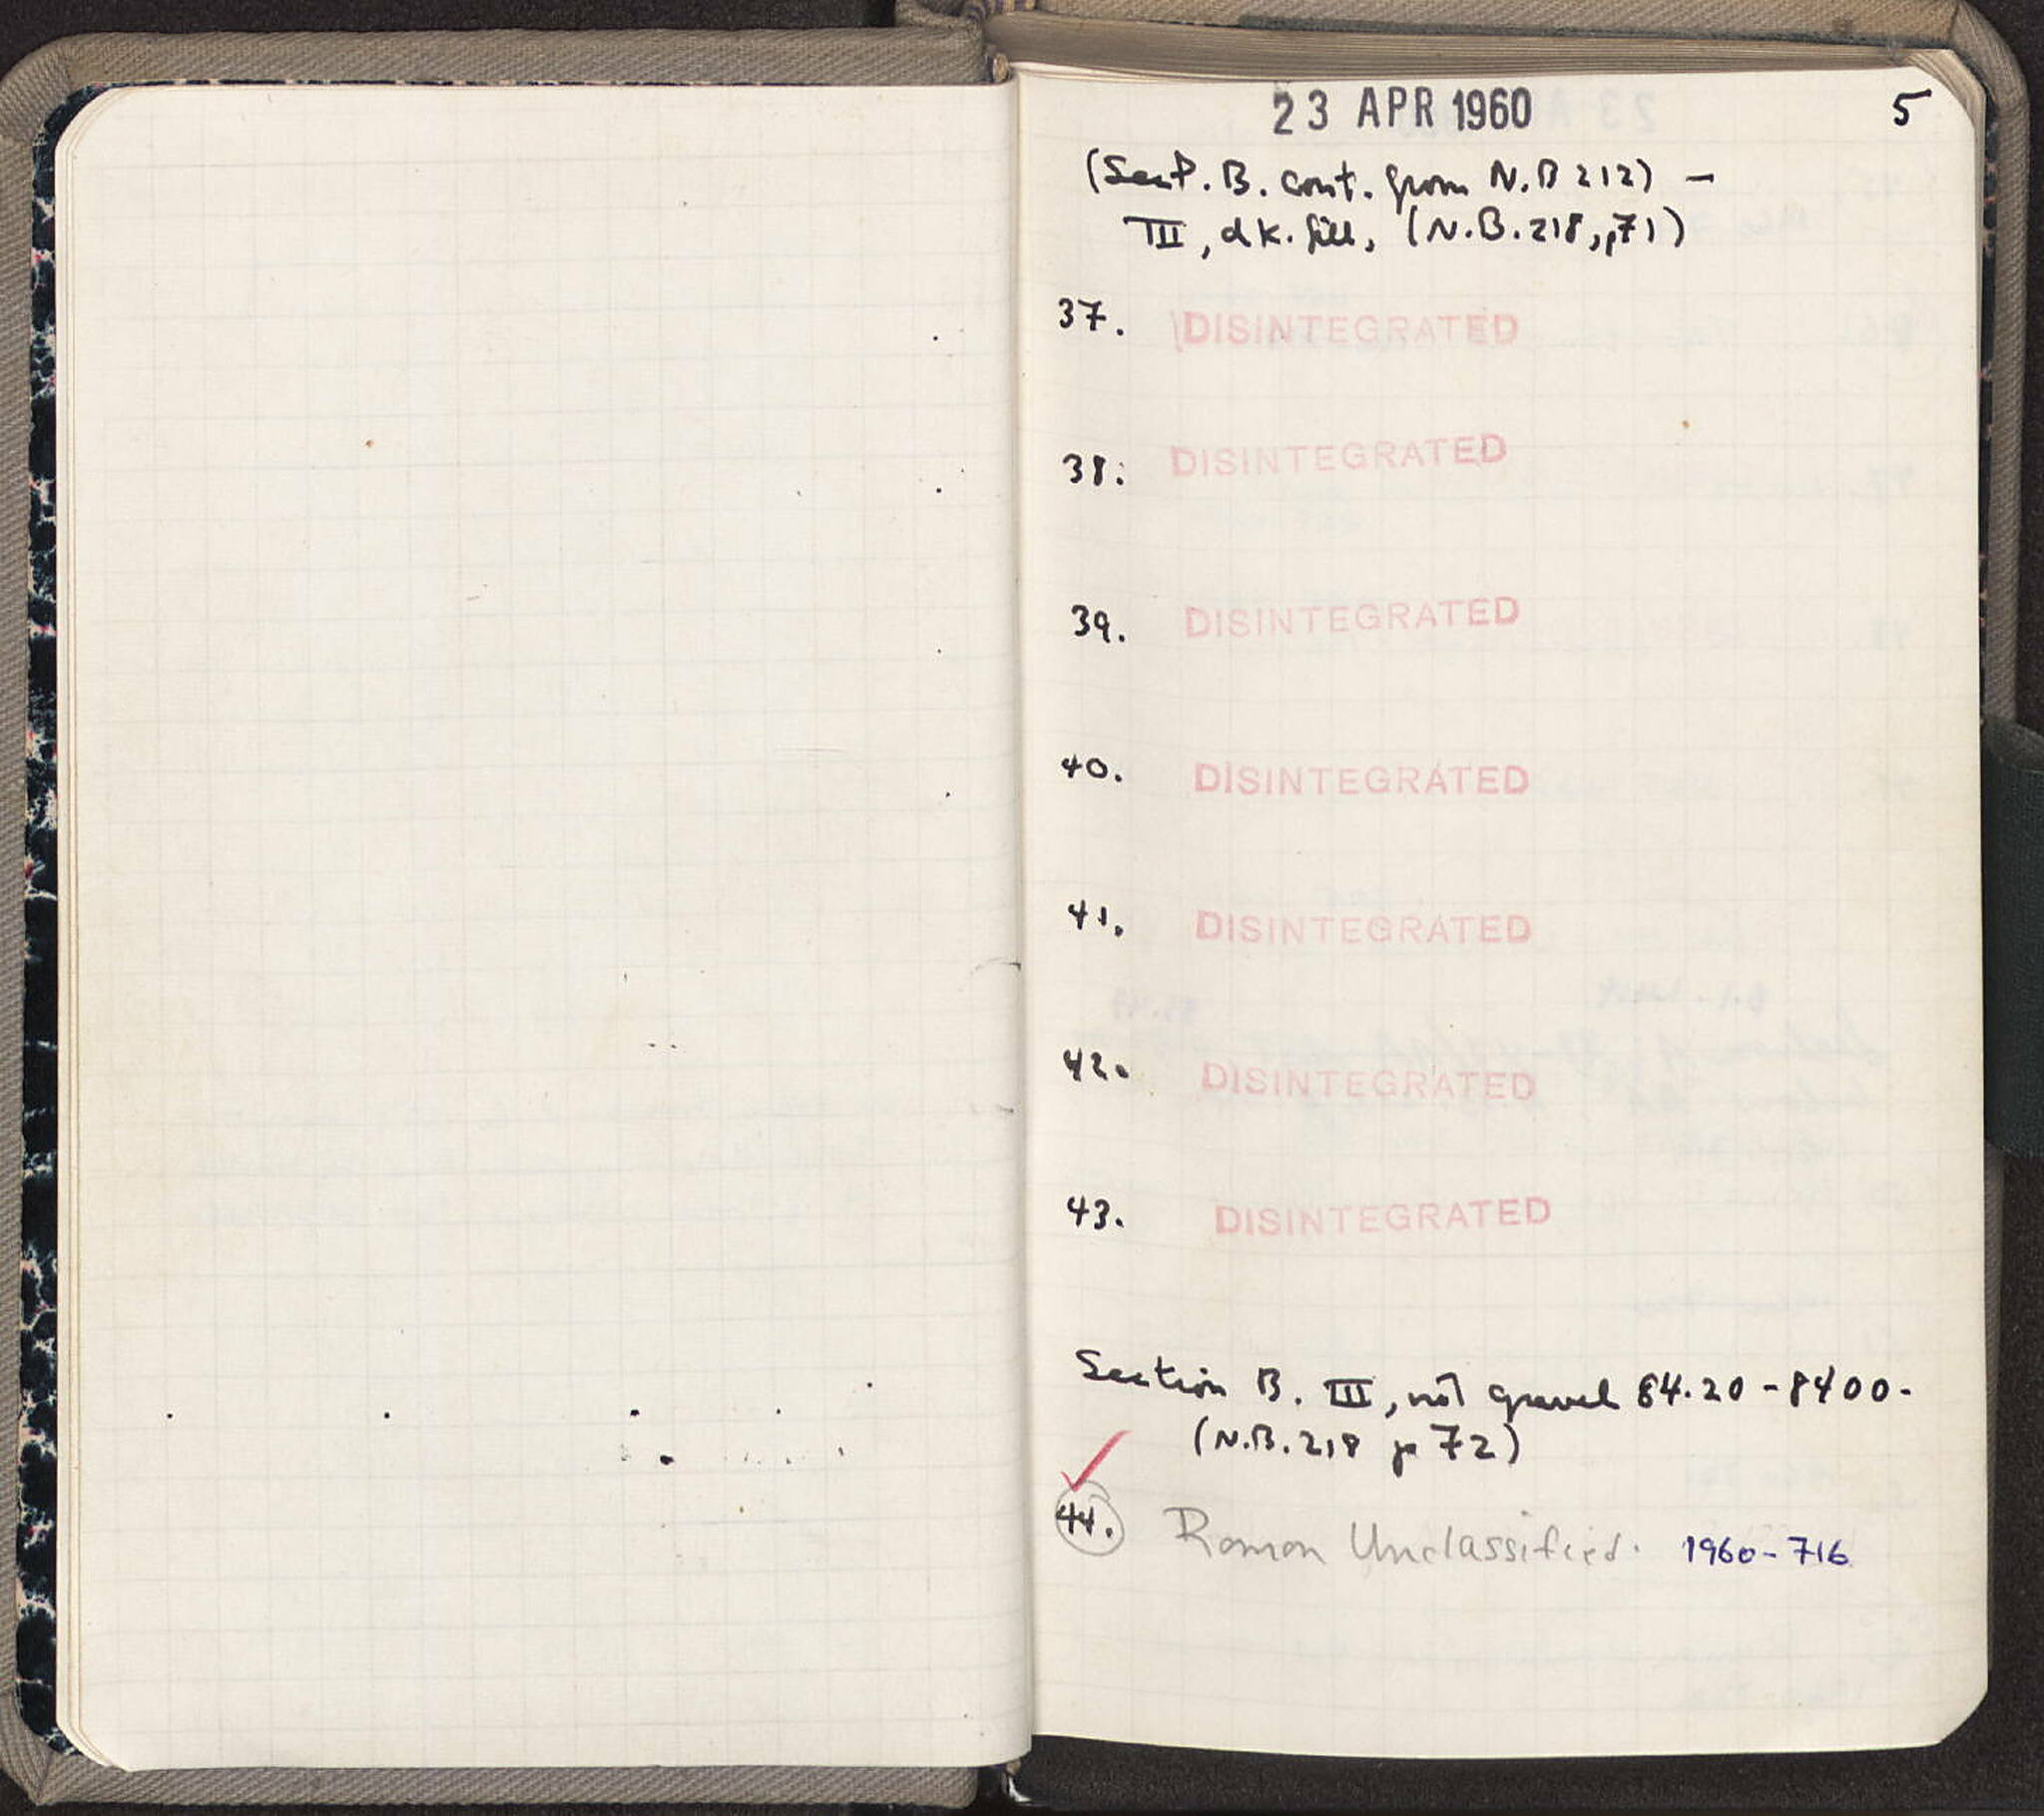 23 APR 1960 5
(Sect. B. cont. from N.B 212) –
III, dk. fill, (N.B. 218, p71)
37. DISINTEGRATED
38. DISINTEGRATED
39. DISINTEGRATED
40. DISINTEGRATED
41. DISINTEGRATED
42. DISINTEGRATED
43. DISINTEGRATED
Section B. III, gravel 84.20 - 8400-
(N.B. 218 p 72)
44. Roman Unclassified. 1960-716